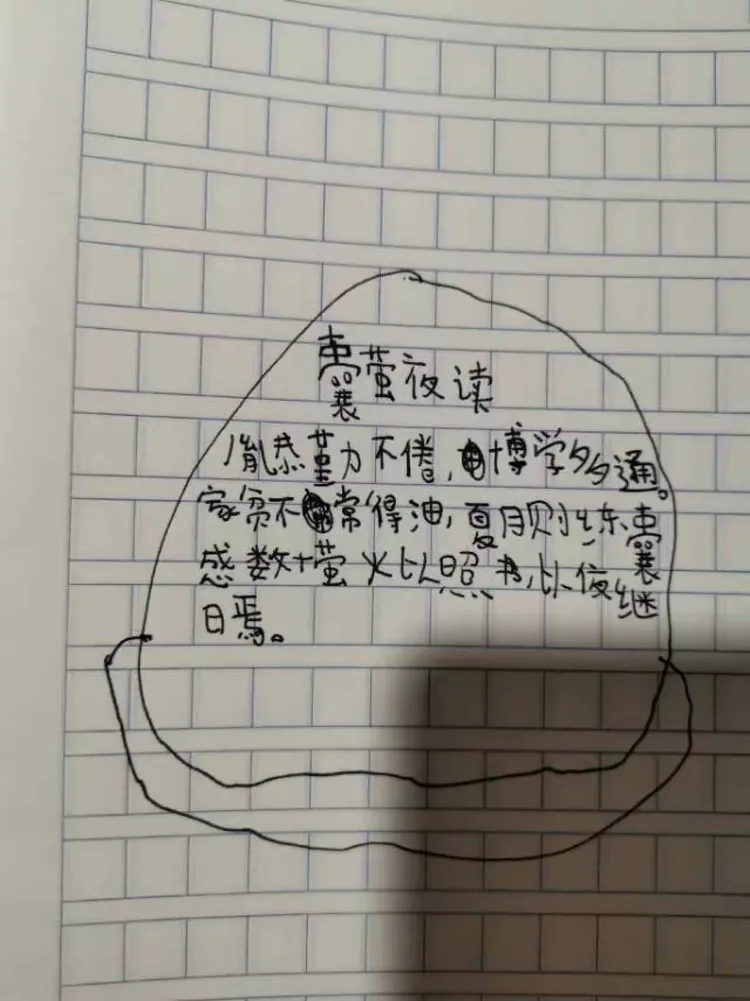 囊萤夜读
胤恭堇力不倦，博学多通。
家贫不常得油，夏月则练囊
感数十萤火以照书，以夜继
日焉。